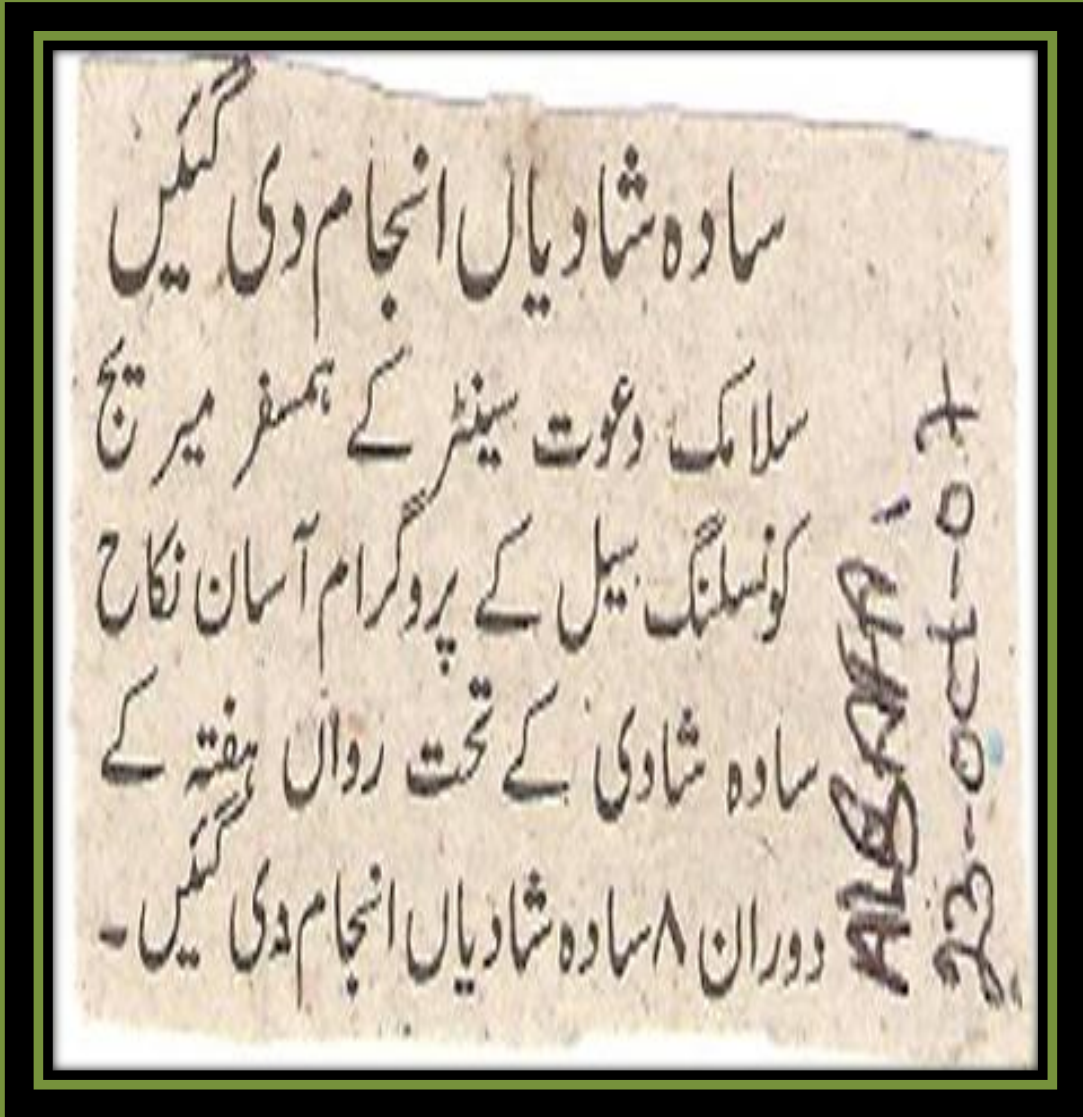 سادہ شادیاں انجام دی گئیں
سلامک دعوت سینٹر کے ہمسفر میریج
کونسلنگ سیل کے پروگرام آسان نکاح
سادہ شادی کے تحت رواں ہفتہ کے
دوران ۸ سادہ شادیاں انجام دی گئیں۔
23-oct-07